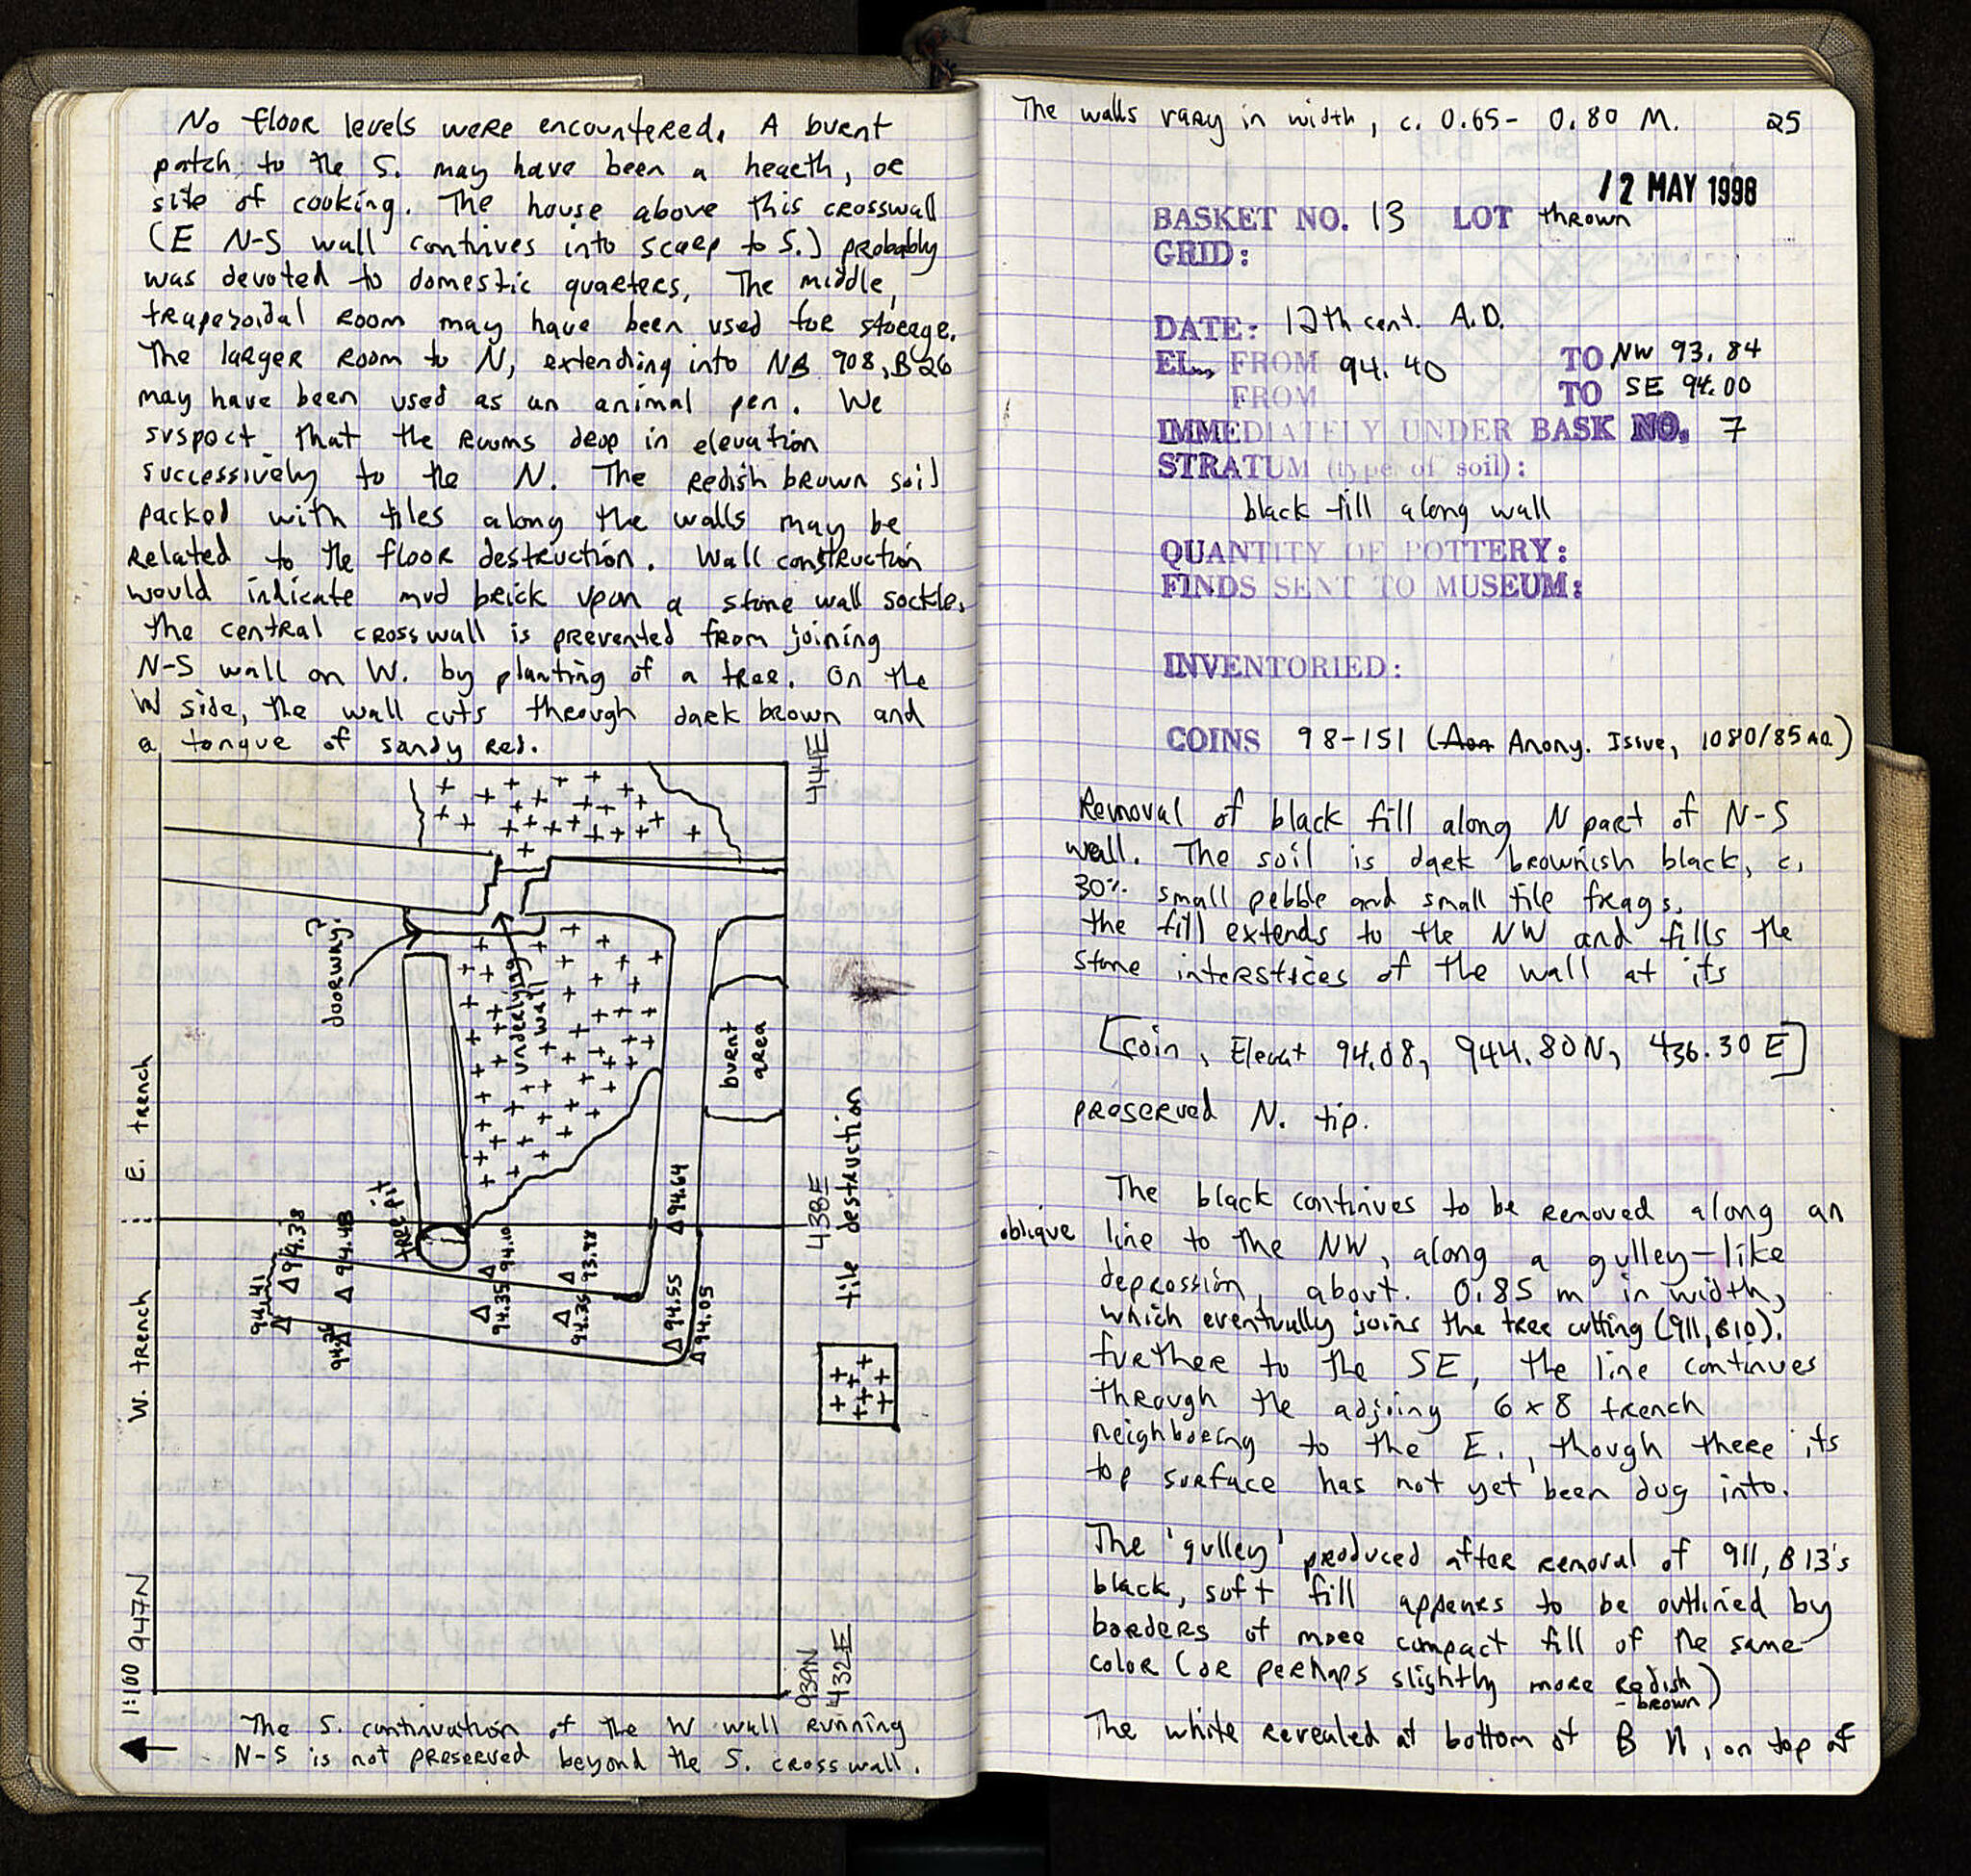 No floor levels were encountered. A burnt
patch to the S. may have been a hearth, or
site of cooking. The house above this crosswall
(E N-S wall continues into scarp to S.) probably
was devoted to domestic quarters, The middle,
trapezoidal room may have been used for storage.
The larger room to N, extending into NB 908, B26
may have been used as an animal pen. We
suspect that the rooms drop in elevation
successively to the N. The redish brown soil
packed with tiles along the walls may be
related to the floor destruction. Wall construction
would indicate mud brick upon a stone wall sockle.
The central crosswall is prevented from joining
N-S wall on W. by planting of a tree. On the
W side, the wall cuts through dark brown and
a tongue of sandy red.
444E
doorway?
underlying
wall
burnt
area
E. trench
W. trench
tree pit
438E
tile destruction
94.38
94.48
94.41
94.10
94.35
93.98
94.35
94.64
94.55
94.05
1:100 947N
939N
432E
The S. continuation of the W wall running
N-S is not preserved beyond the S. crosswall.
The walls vary in width, c. 0.65- 0.80 M. 25
12 MAY 1998
BASKET NO. 13 LOT thrown
GRID:
DATE: 12th cent. A.D.
EL., FROM 94.40 TO NW 93.84
FROM TO SE 94.00
IMMEDIATELY UNDER BASK NO. 7
STRATUM (type of soil):
black fill along wall
QUANTITY OF POTTERY:
FINDS SENT TO MUSEUM:
INVENTORIED:
COINS 98-151 (Anony. Issue, 1080/85 AD)
Removal of black fill along N part of N-S
wall. The soil is dark brownish black, c.
30% small pebble and small tile frags.
The fill extends to the NW and fills the
stone interstices of the wall at its
[coin, Elevat 94.08, 944.80N, 436.30 E]
preserved N. tip.
The black continues to be removed along an
oblique line to the NW, along a gulley-like
depression, about. 0.85 m in width,
which eventually joins the tree cutting (911, B10).
Further to the SE, the line continues
through the adjoing 6 x 8 trench
neighboring to the E., though there its
top surface has not yet been dug into.
The 'gulley' produced after removal of 911, B13's
black, soft fill appears to be outlined by
borders of more compact fill of the same
color (or perhaps slightly more redish
-brown)
The white revealed at bottom of B 11, on top of